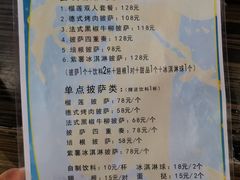 1. 榴莲双人套餐：128元
2. 德式烤肉披萨：108元
3. 法式黑椒牛柳披萨：118元
4. 披萨四重奏：128元
5. 培根披萨：98元
6. 紫薯冰淇淋披萨：128元
(披萨1个+饮料2杯+翅根1对+甜品1个+冰淇淋球1个)
单点披萨类：
榴莲披萨：78元/个
德式烤肉披萨：58元/个
法式黑椒牛柳披萨：68元/个
披萨四重奏：78元/个
培根披萨：58元/个
紫薯冰淇淋披萨：78元/个
自制饮料：10元/杯 冰淇淋球：18元/2个
15元/对 蛋挞：15元/2个